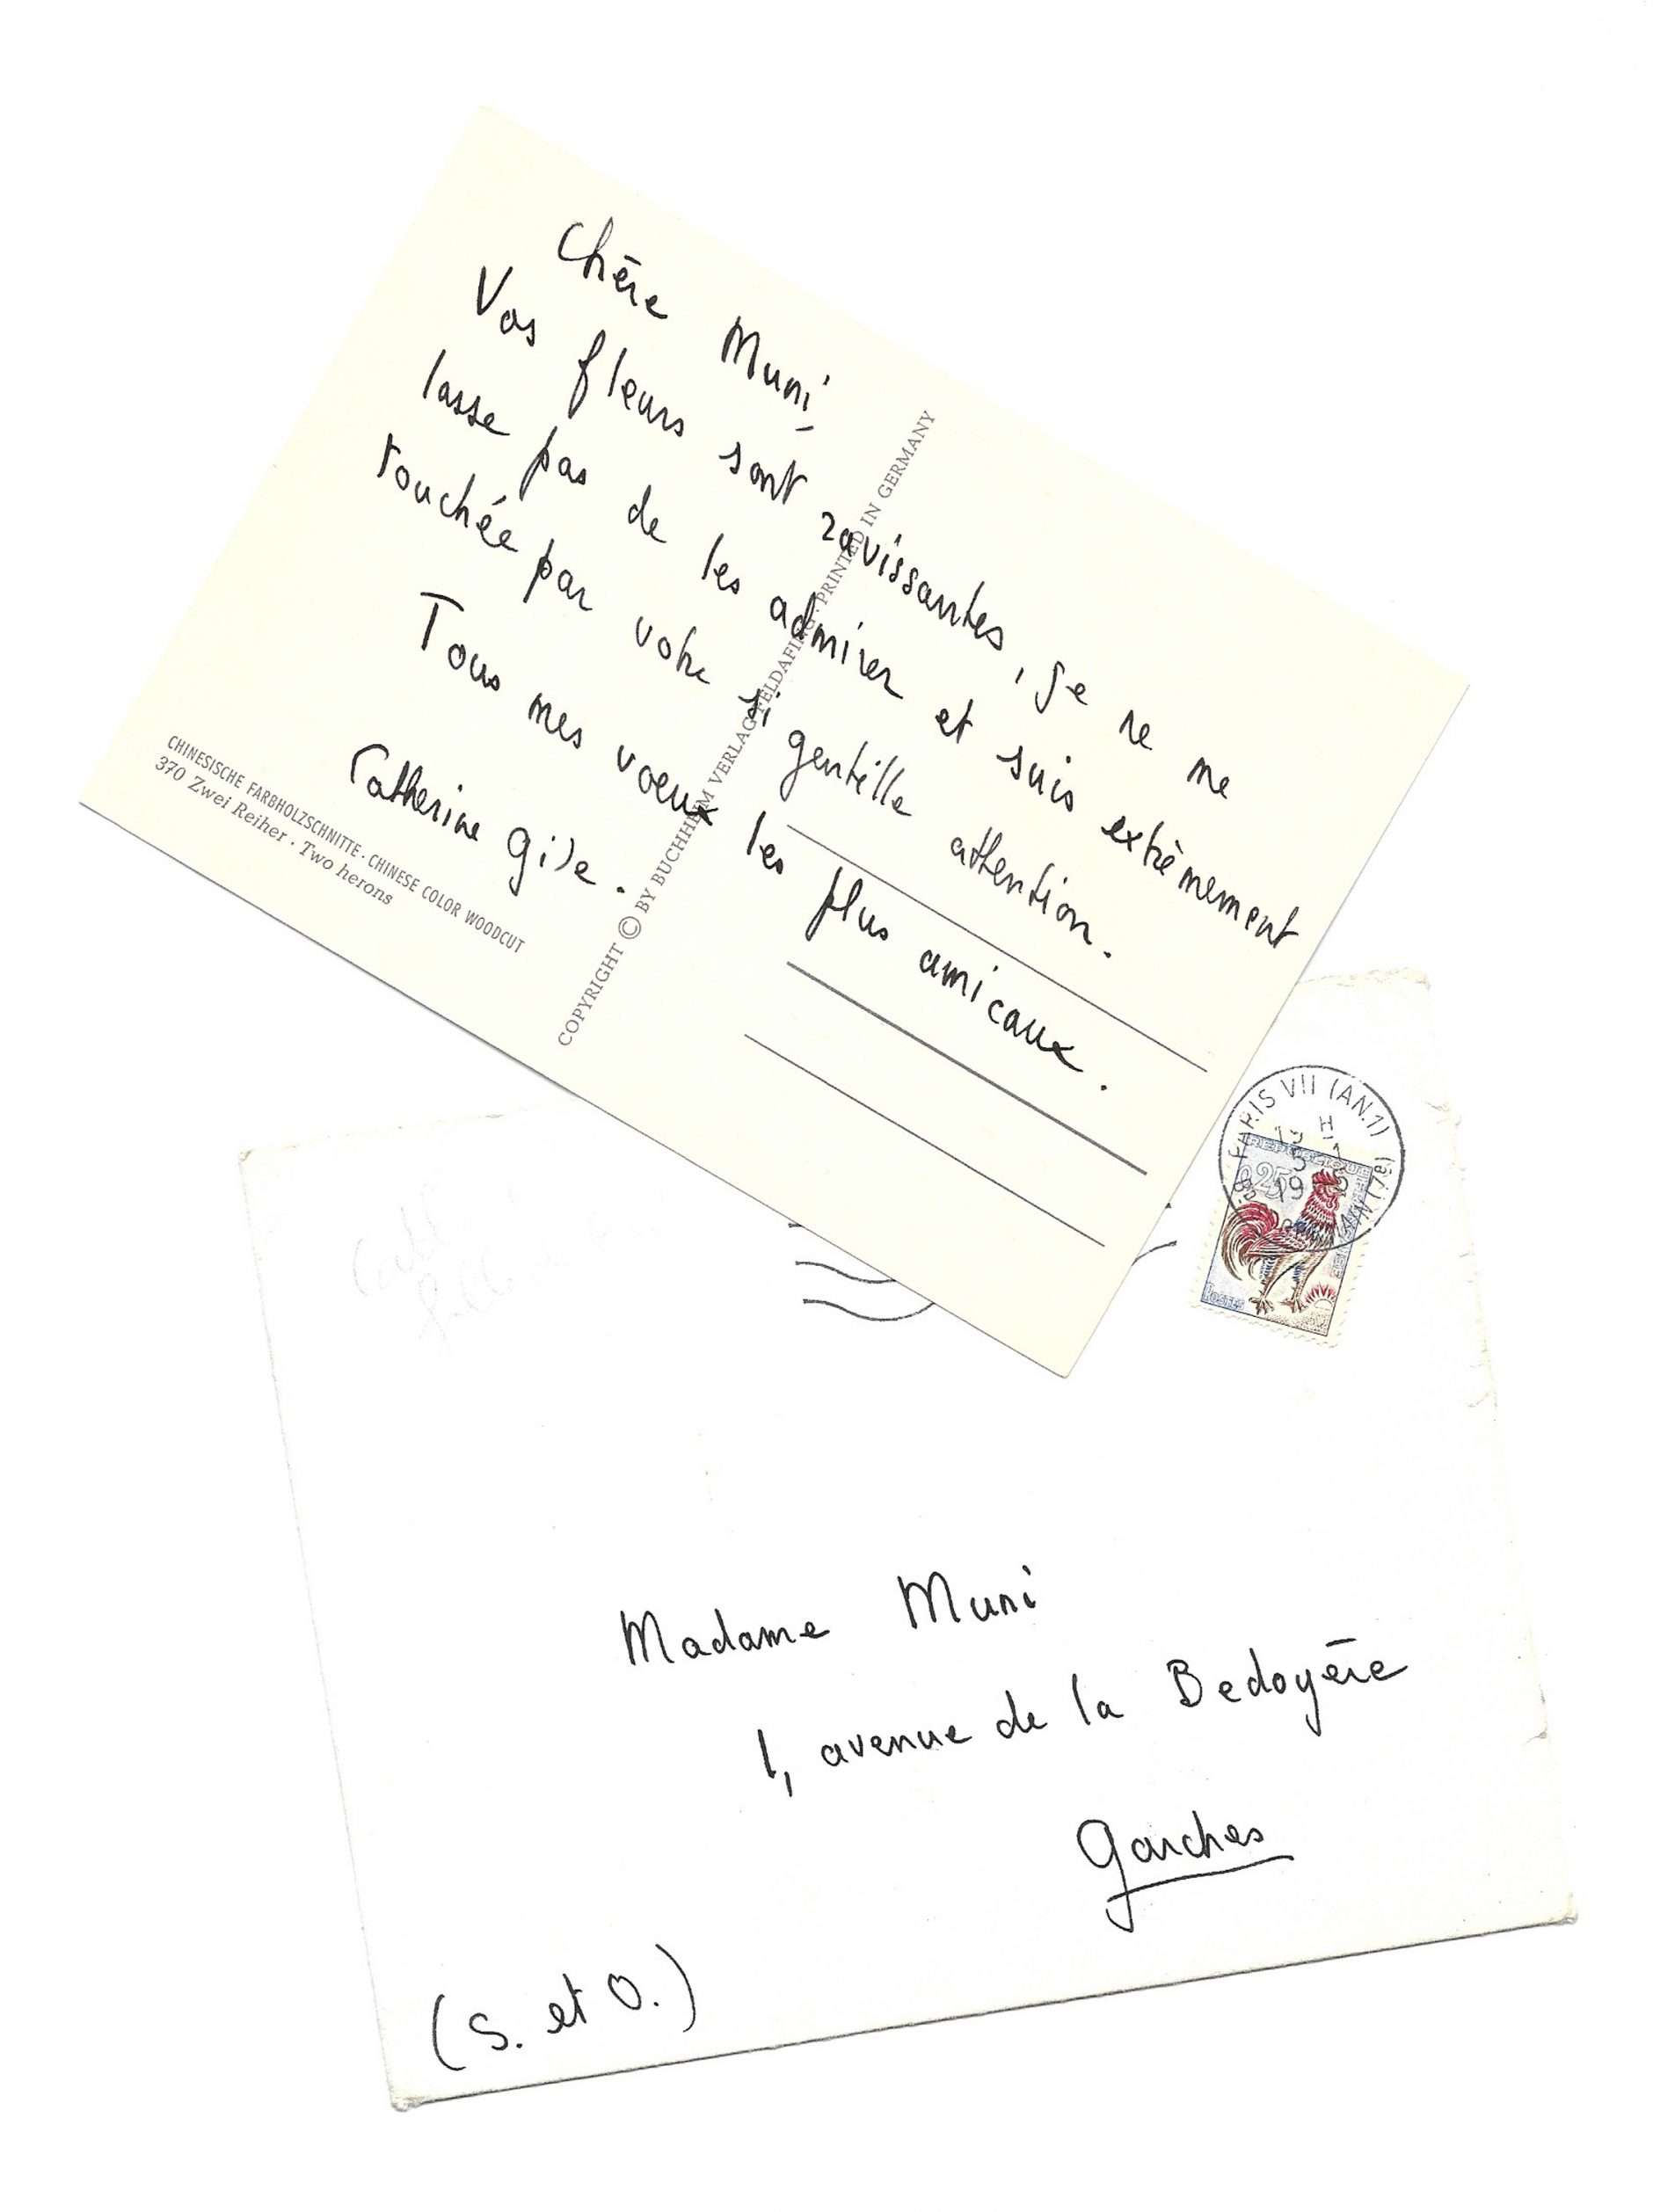 Chère Muni,
Vos fleurs sont ravissantes, je ne me
lasse pas de les admirer et suis extrêmement
touchée par votre si gentille attention.
Tous mes voeux les plus amicaux.
Catherine Gide.
CHINESISCHE FARBHOLZSCHNITTE · CHINESE COLOR WOODCUT
370 Zwei Reiher · Two herons
COPYRIGHT © BY BUCHHEIM VERLAG FELDAFING · PRINTED IN GERMANY
PARIS VII (AN.1)
19 H
0,25
POSTES
Madame Muni
1, avenue de la Bedoyère
Garches
(S. et O.)